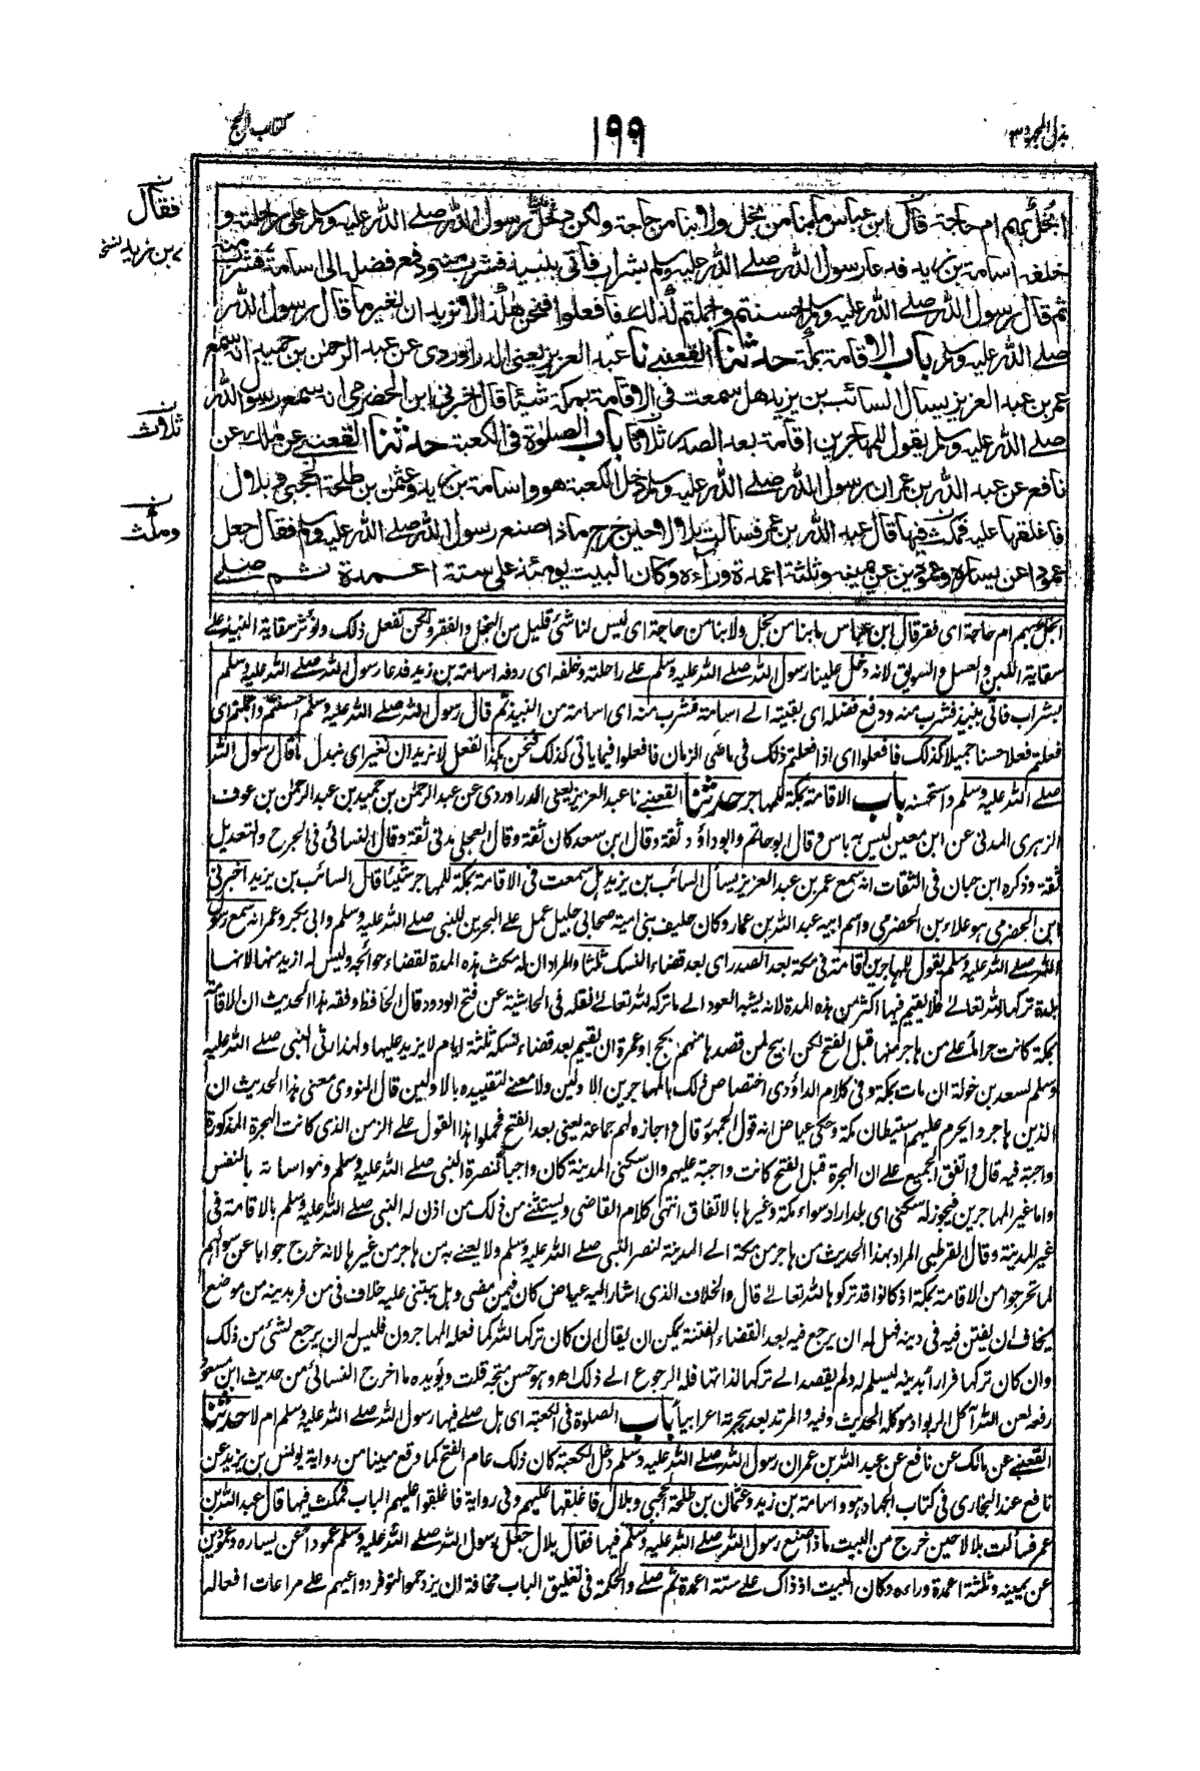 بذل المجهود ٣
١٩٩
كتاب الحج
فقال
ثلاث
ومكث
ابخل بهم ام حاجة قال ابن عباس ما بنا من بخل ولا بنا من حاجة ولكن دخل رسول الله صلے الله عليه وسلم على راحلته و
خلفه اسامة بن زيد فدعا رسول الله صلے الله عليه وسلم بشراب فأتي بنبيذ فشرب منه ودفع فضله الى اسامة فشرب منه
ثم قال رسول الله صلے الله عليه وسلم احسنتم واجملتم كذلك فافعلوا فنحن هكذا لا نريد ان نغير ما قال رسول الله
صلے الله عليه وسلم باب الاقامة بمكة حدثنا القعنبي نا عبد العزيز يعني الدراوردي عن عبد الرحمن بن حميد انه سمع
عمر بن عبد العزيز يسأل السائب بن يزيد هل سمعت في الاقامة بمكة شيئا قال اخبرني ابن الحضرمي انه سمع رسول الله
صلے الله عليه وسلم يقول للمهاجرين اقامة بعد الصدر ثلاثا باب الصلوة في الكعبة حدثنا القعنبي عن مالك عن
نافع عن عبد الله بن عمر ان رسول الله صلے الله عليه وسلم دخل الكعبة هو واسامة بن زيد وعثمن بن طلحة الحجبي وبلال
فاغلقها عليه فمكث فيها قال عبد الله بن عمر فسالت بلالا حين خرج ماذا صنع رسول الله صلے الله عليه وسلم فقال جعل
عمودا عن يساره وعمودين عن يمينه وثلثة اعمدة وراءه وكان البيت يومئذ على ستة اعمدة ثم صلے
ابخل بهم ام حاجة اى فقر قال ابن عباس ما بنا من بخل ولا بنا من حاجة اى ليس لنا شئ قليل من البخل والفقر ولكن نفعل ذلك ونؤثر سقاية النبيذ على
سقاية اللبن والعسل والسويق لانه دخل علينا رسول الله صلے الله عليه وسلم على راحلته وخلفه اى ردفه اسامة بن زيد فدعا رسول الله صلے الله عليه وسلم
بشراب فأتي بنبيذ فشرب منه ودفع فضله اى بقيته الے اسامة فشرب منه اى اسامة من النبيذ ثم قال رسول الله صلے الله عليه وسلم احسنتم واجملتم اى
فعلتم فعلا حسنا جميلا كذلك فافعلوا اى اذا فعلتم ذلك في ماضى الزمان فافعلوا فيما ياتى كذلك فنحن هكذا نفعل لا نريد ان نغير اى نبدل ما قال رسول الله
صلے الله عليه وسلم واستحسنه باب الاقامة بمكة للمهاجر حدثنا القعنبي نا عبد العزيز يعني الدراوردي عن عبد الرحمن بن حميد بن عبد الرحمن بن عوف
الزهرى المدنى عن ابن معين ليس به باس وقال ابو حاتم وابو داؤد ثقة وقال ابن سعد كان ثقة وقال العجلى مدنى ثقة وقال النسائى فى الجرح والتعديل
ثقة وذكره ابن حبان فى الثقات انه سمع عمر بن عبد العزيز يسأل السائب بن يزيد هل سمعت فى الاقامة بمكة للمهاجر شيئا قال السائب بن يزيد اخبرنى
ابن الحضرمى هو علاء بن الحضرمى واسم ابيه عبد الله بن عمار وكان حليف بنى امية صحابى جليل عمل على البحرين للنبى صلے الله عليه وسلم وابى بكر وعمر انه سمع رسول
الله صلے الله عليه وسلم يقول للمهاجرين اقامة فى مكة بعد الصدر اى بعد قضاء النسك ثلثا والمراد ان له مكث هذه المدة لقضاء حوائجه وليس له ازيد منها لانها
بلدة تركها لله تعالے فلا يقيم فيها اكثر من هذه المدة لانه يشبه العود الے ما تركه لله تعالے نقله فى الحاشية عن فتح الودود قال الحافظ وفقه هذا الحديث ان الاقامة
بمكة كانت حراما على من هاجر منها قبل الفتح لكن ابيح لمن قصدها منهم بحج او عمرة ان يقيم بعد قضاء نسكه ثلثة ايام لا يزيد عليها ولهذا رثى النبى صلے الله عليه
وسلم لسعد بن خولة ان مات بمكة وفى كلام الداؤدى اختصاص ذلك بالمهاجرين الاولين ولا معنے لتقييده بالاولين قال النووى معنى هذا الحديث ان
الذين هاجروا يحرم عليهم استيطان مكة وحكى عياض انه قول الجمهور قال واجازه لهم جماعة يعنى بعد الفتح فحملوا هذا القول على الزمن الذى كانت الهجرة المذكورة
واجبة فيه قال واتفق الجميع على ان الهجرة قبل الفتح كانت واجبة عليهم وان سكنى المدينة كان واجبا لنصرة النبى صلے الله عليه وسلم ومواساته بالنفس
واما غير المهاجرين فيجوز له سكنى اى بلد اراد سواء مكة وغيرها بالاتفاق انتهى كلام القاضى ويستثنے من ذلك من اذن له النبى صلے الله عليه وسلم بالاقامة فى
غير المدينة وقال القرطبى المراد بهذا الحديث من هاجر من مكة الے المدينة لنصر النبى صلے الله عليه وسلم ولا يعنے به من هاجر من غيرها لانه خرج جوابا عن سوالهم
لما تحرجوا من الاقامة بمكة اذ كانوا قد تركوها لله تعالے قال والخلاف الذى اشار اليه عياض كان فيمن مضى وهل يبتنى عليه خلاف فى من فر بدينه من موضع
يخاف ان يفتن فيه فى دينه فهل له ان يرجع فيه بعد انقضاء الفتنة يمكن ان يقال ان كان تركها لله كما فعله المهاجرون فليس له ان يرجع لشئ من ذلك
وان كان تركها فرارا بدينه ليسلم له ولم يقصد الے تركها لذاتها فله الرجوع الے ذلك اھ وهو حسن متجه قلت ويؤيده ما اخرج النسائى من حديث ابن مسعود
رفعه لعن الله آكل الربوا وموكله الحديث وفيه والمرتد بعد هجرته اعرابيا باب الصلوة فى الكعبة اى هل صلے فيها رسول الله صلے الله عليه وسلم ام لا حدثنا
القعنبے عن مالك عن نافع عن عبد الله بن عمر ان رسول الله صلے الله عليه وسلم دخل الكعبة كان ذلك عام الفتح كما وقع مبينا من رواية يونس بن يزيد عن
نافع عند البخارى فى كتاب الجهاد هو واسامة بن زيد وعثمان بن طلحة الحجبى وبلال فاغلقها عليهم وفى رواية فاغلقوا عليهم الباب فمكث فيها قال عبد الله بن
عمر فسألت بلالا حين خرج من البيت ماذا صنع رسول الله صلے الله عليه وسلم فيها فقال بلال جعل رسول الله صلے الله عليه وسلم عمودا عن يساره وعمودين
عن يمينه وثلثة اعمدة وراءه وكان البيت اذ ذاك على ستة اعمدة ثم صلے والحكمة فى تغليق الباب مخافة ان يزدحموا لتوفر دواعيهم على مراعات افعاله